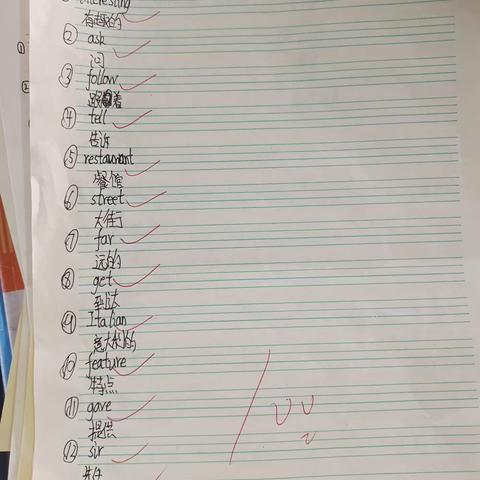 interesting
有趣的
② ask
问
③ follow
跟着
④ tell
告诉
⑤ restaurant
餐馆
⑥ street
大街
⑦ far
远的
⑧ get
到达
⑨ Italian
意大利的
⑩ feature
特点
⑪ gave
提供
⑫ sir
先生